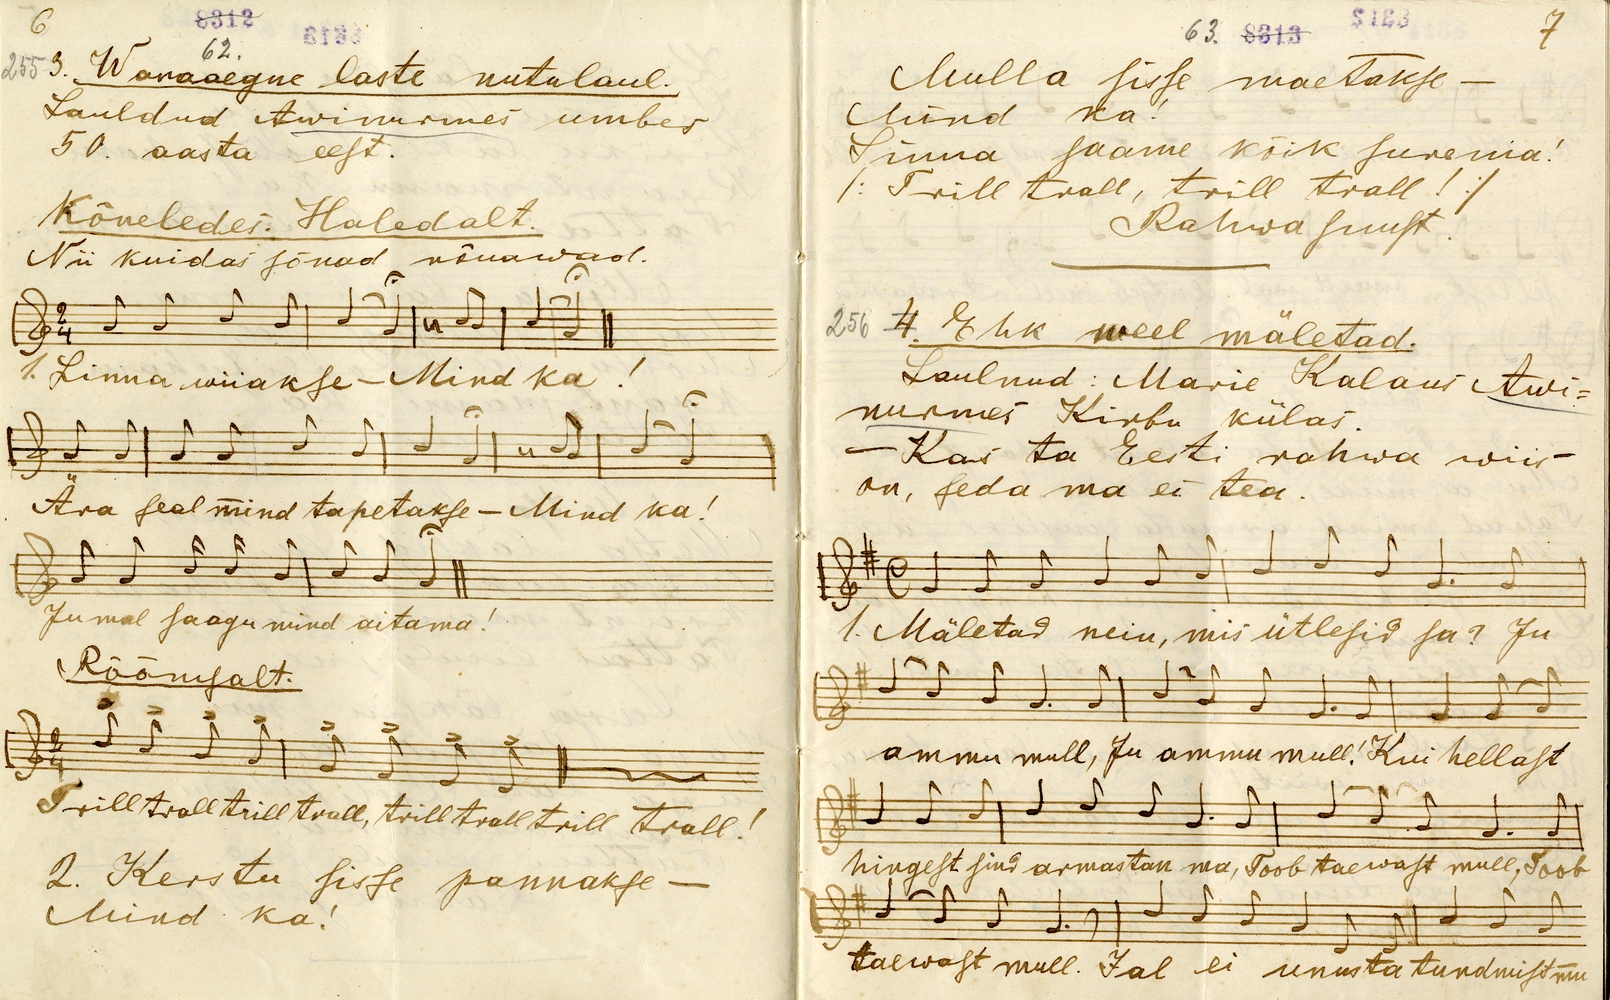 6
8312
8183
62.
255 3. Waraaegne laste nutulaul.
Lauldud Awinurmes ümber
50. aasta eest.
Kõneledes. Haledalt.
Nii kuidas sõnad nõuawad.
1. Linna wiiakse – Mind ka!
Ära seal mind tapetakse – Mind ka!
Jumal saagu mind aitama!
Rõõmsalt.
Trill trall trill trall, trill trall trill trall!
2. Kerstu sisse pannakse –
Mind ka!
63. 8313 8183
7
Mulla sisse maetakse –
Mind ka!
Sinna saame kõik surema!
/: Trill trall, trill trall! :/
Rahwa suust.
256 4. Ehk weel mäletad.
Laulnud: Marie Kalaus Awi=
nurmes Kirbu külas.
– Kas ta Eesti rahwa wiis
on, seda ma ei tea.
1. Mäletad neiu, mis ütlesid sa? Ju
ammu mull, Ju ammu mull! Kui hellast
hingest sind armastan ma, Toob taewast mull, Toob
taewast mull. Jal ei unusta tundmist mu